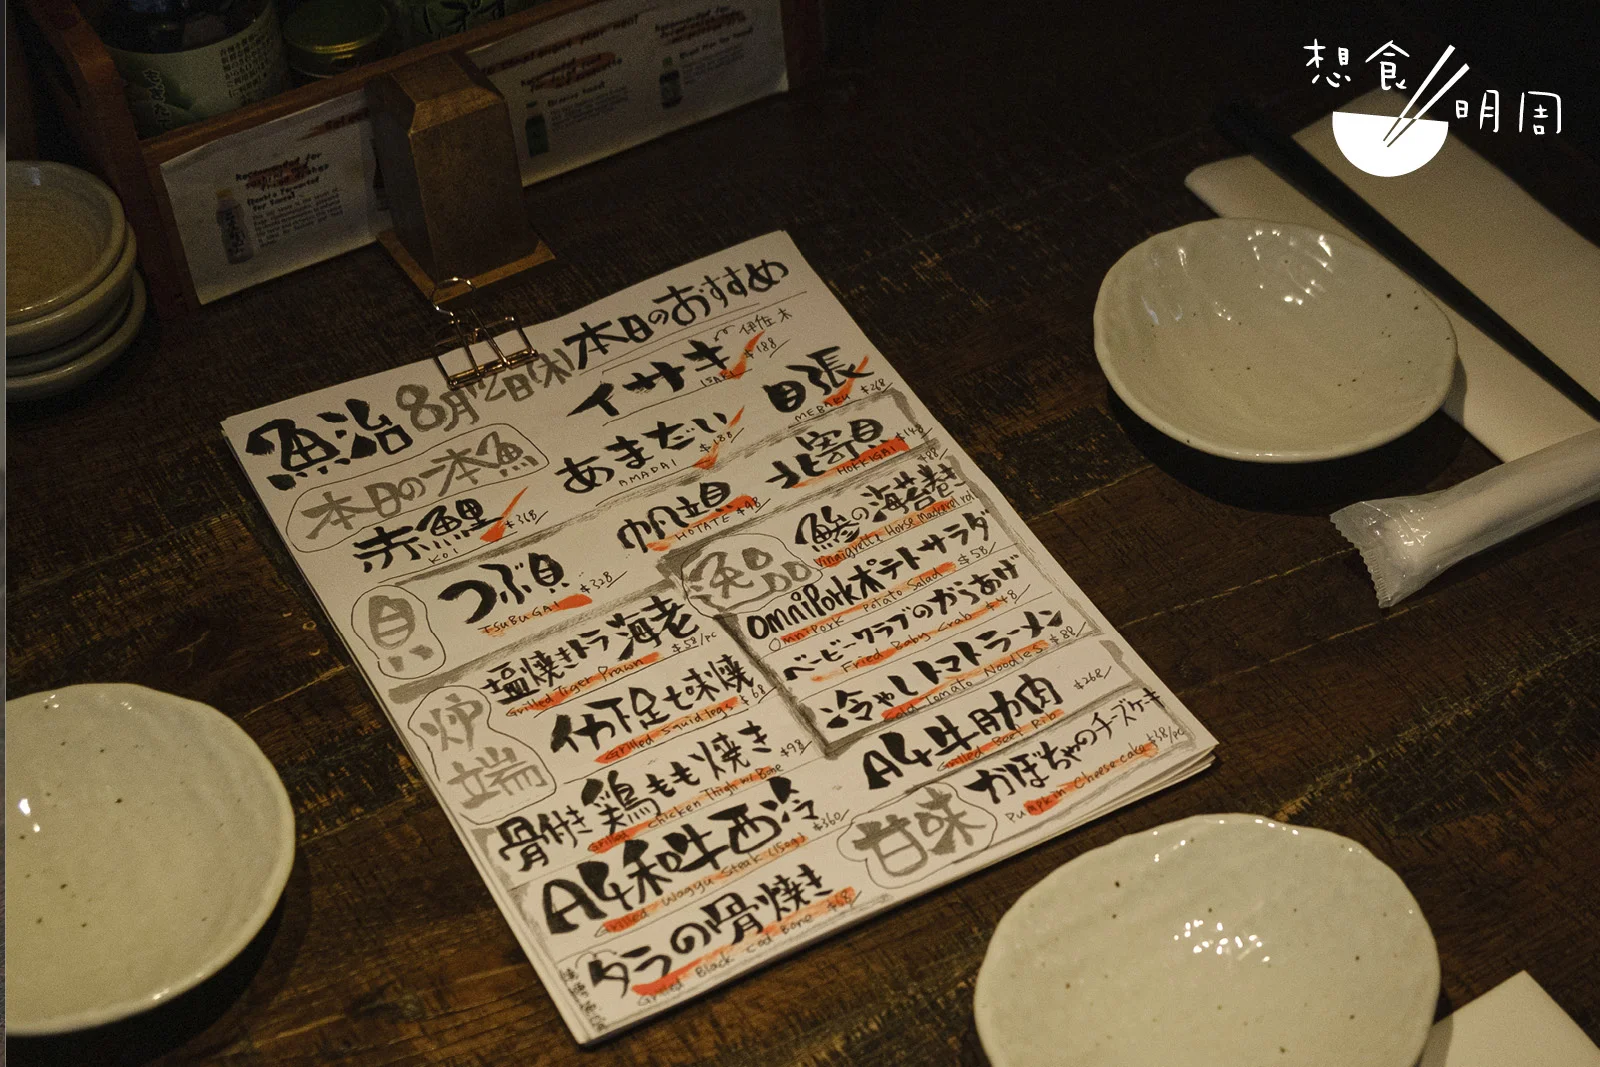 想食
明周
Recommended for
本日のおすすめ
魚治 8月12日(木)
イサキ
伊佐木
ISAKI $188
目張
MEBARU $268
本日の一本魚
あまだい
AMADAI $188
赤鯉
KOI $368
北寄貝 $148
HOKKIGAI
帆立貝
HOTATE $98
貝
つぶ貝
TSUBUGAI $328
逸品
鯵の海苔巻 $88
Vinaigrette Horse Mackerel roll
omniPorkポテトサラダ
OmniPork Potato Salad $58
ベービークラブのからあげ
Fried Baby Crab $48
冷やしトマトラーメン
Cold Tomato Noodles $88
炉端
塩焼きトラ海老
Grilled Tiger Prawn $58/pc
イカ下足七味焼
Grilled Squid legs $68
骨付き鶏もも焼き
Grilled Chicken Thigh w/ Bone $98
A4和牛西冷
Grilled Wagyu Steak (150g) $360
タラの骨焼き
Grilled Black Cod Bone $68
A4牛肋肉
Grilled Beef Rib $268
甘味
かぼちゃのチーズケーキ
Pumpkin Cheese cake $38/pc